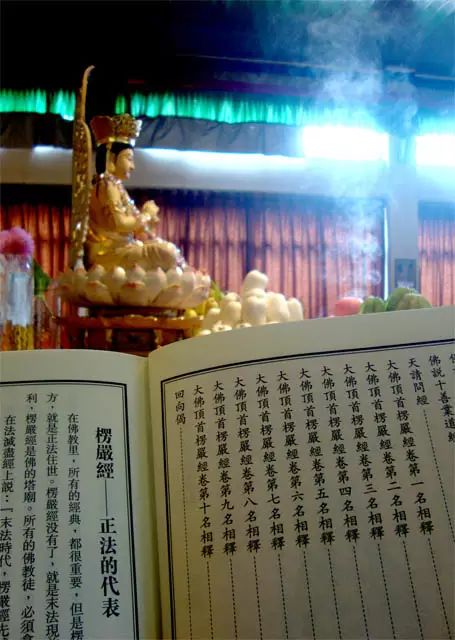 佛說十善業道經
天請問經
大佛頂首楞嚴經卷第一名相釋
大佛頂首楞嚴經卷第二名相釋
大佛頂首楞嚴經卷第三名相釋
大佛頂首楞嚴經卷第四名相釋
大佛頂首楞嚴經卷第五名相釋
大佛頂首楞嚴經卷第六名相釋
大佛頂首楞嚴經卷第七名相釋
大佛頂首楞嚴經卷第八名相釋
大佛頂首楞嚴經卷第九名相釋
大佛頂首楞嚴經卷第十名相釋
回向偈
楞嚴經——正法的代表
在佛教里,所有的經典,都很重要,但是楞
方,就是正法住世。楞嚴經沒有了,就是末法現
利,楞嚴經是佛的塔廟。所有的佛教徒,必須拿
在法滅盡經上說:「末法時代,楞嚴經先